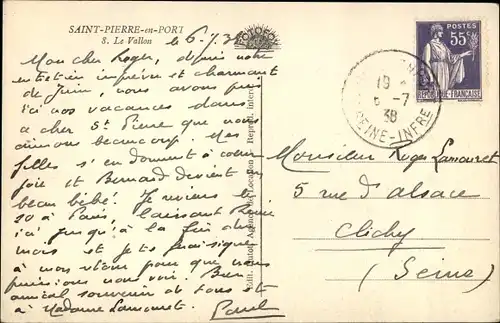 SAINT-PIERRE-en-PORT
8. Le Vallon
le 6.7.38
Mon cher Roger, depuis notre
entretien imprévu et charmant
de Juin, nous avons pris
ici nos vacances dans
ce cher St Pierre que nous
aimons beaucoup. Mes
filles s'en donnent à cœur
joie et Bernard devient un
beau bébé. Je reviens le
20 à Paris, laissant
ici jusqu'à la fin du
mois et je te
à mon retour pour que nous
puissions nous voir. Bien
amical souvenir de tous et
à Madame Lamouret. Paul
POSTES
55c
REPUBLIQUE FRANÇAISE
19
6 -7
38
SEINE-INFRE
Monsieur Roger Lamouret
5 rue d'Alsace
Clichy
(Seine)